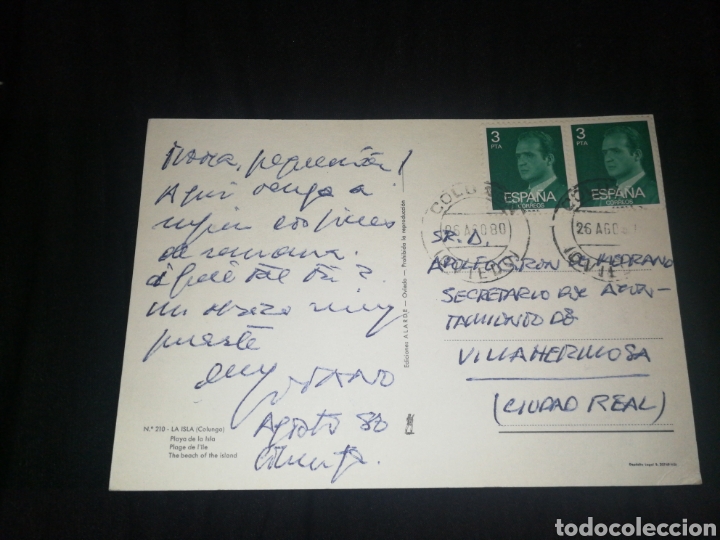 3
PTA
ESPAÑA
CORREOS
3
PTA
ESPAÑA
CORREOS
26 AGO 80
(OVIEDO)
26 AGO 8
Aquí vengo a
fines
de semana.
¿Qué tal tú?
un abrazo muy
fuerte
Agosto 80
Colunga.
SR. D.
ADOLFO DE MEDRANO
SECRETARIO DEL AYUN-
TAMIENTO DE
VILLAHERMOSA
(CIUDAD REAL)
Ediciones ALARDE - Oviedo - Prohibida la reproducción
N.º 210 - LA ISLA (Colunga)
Playa de la Isla
Plage de l'Ile
The beach of the island
Depósito Legal
todocoleccion
todocoleccion.net